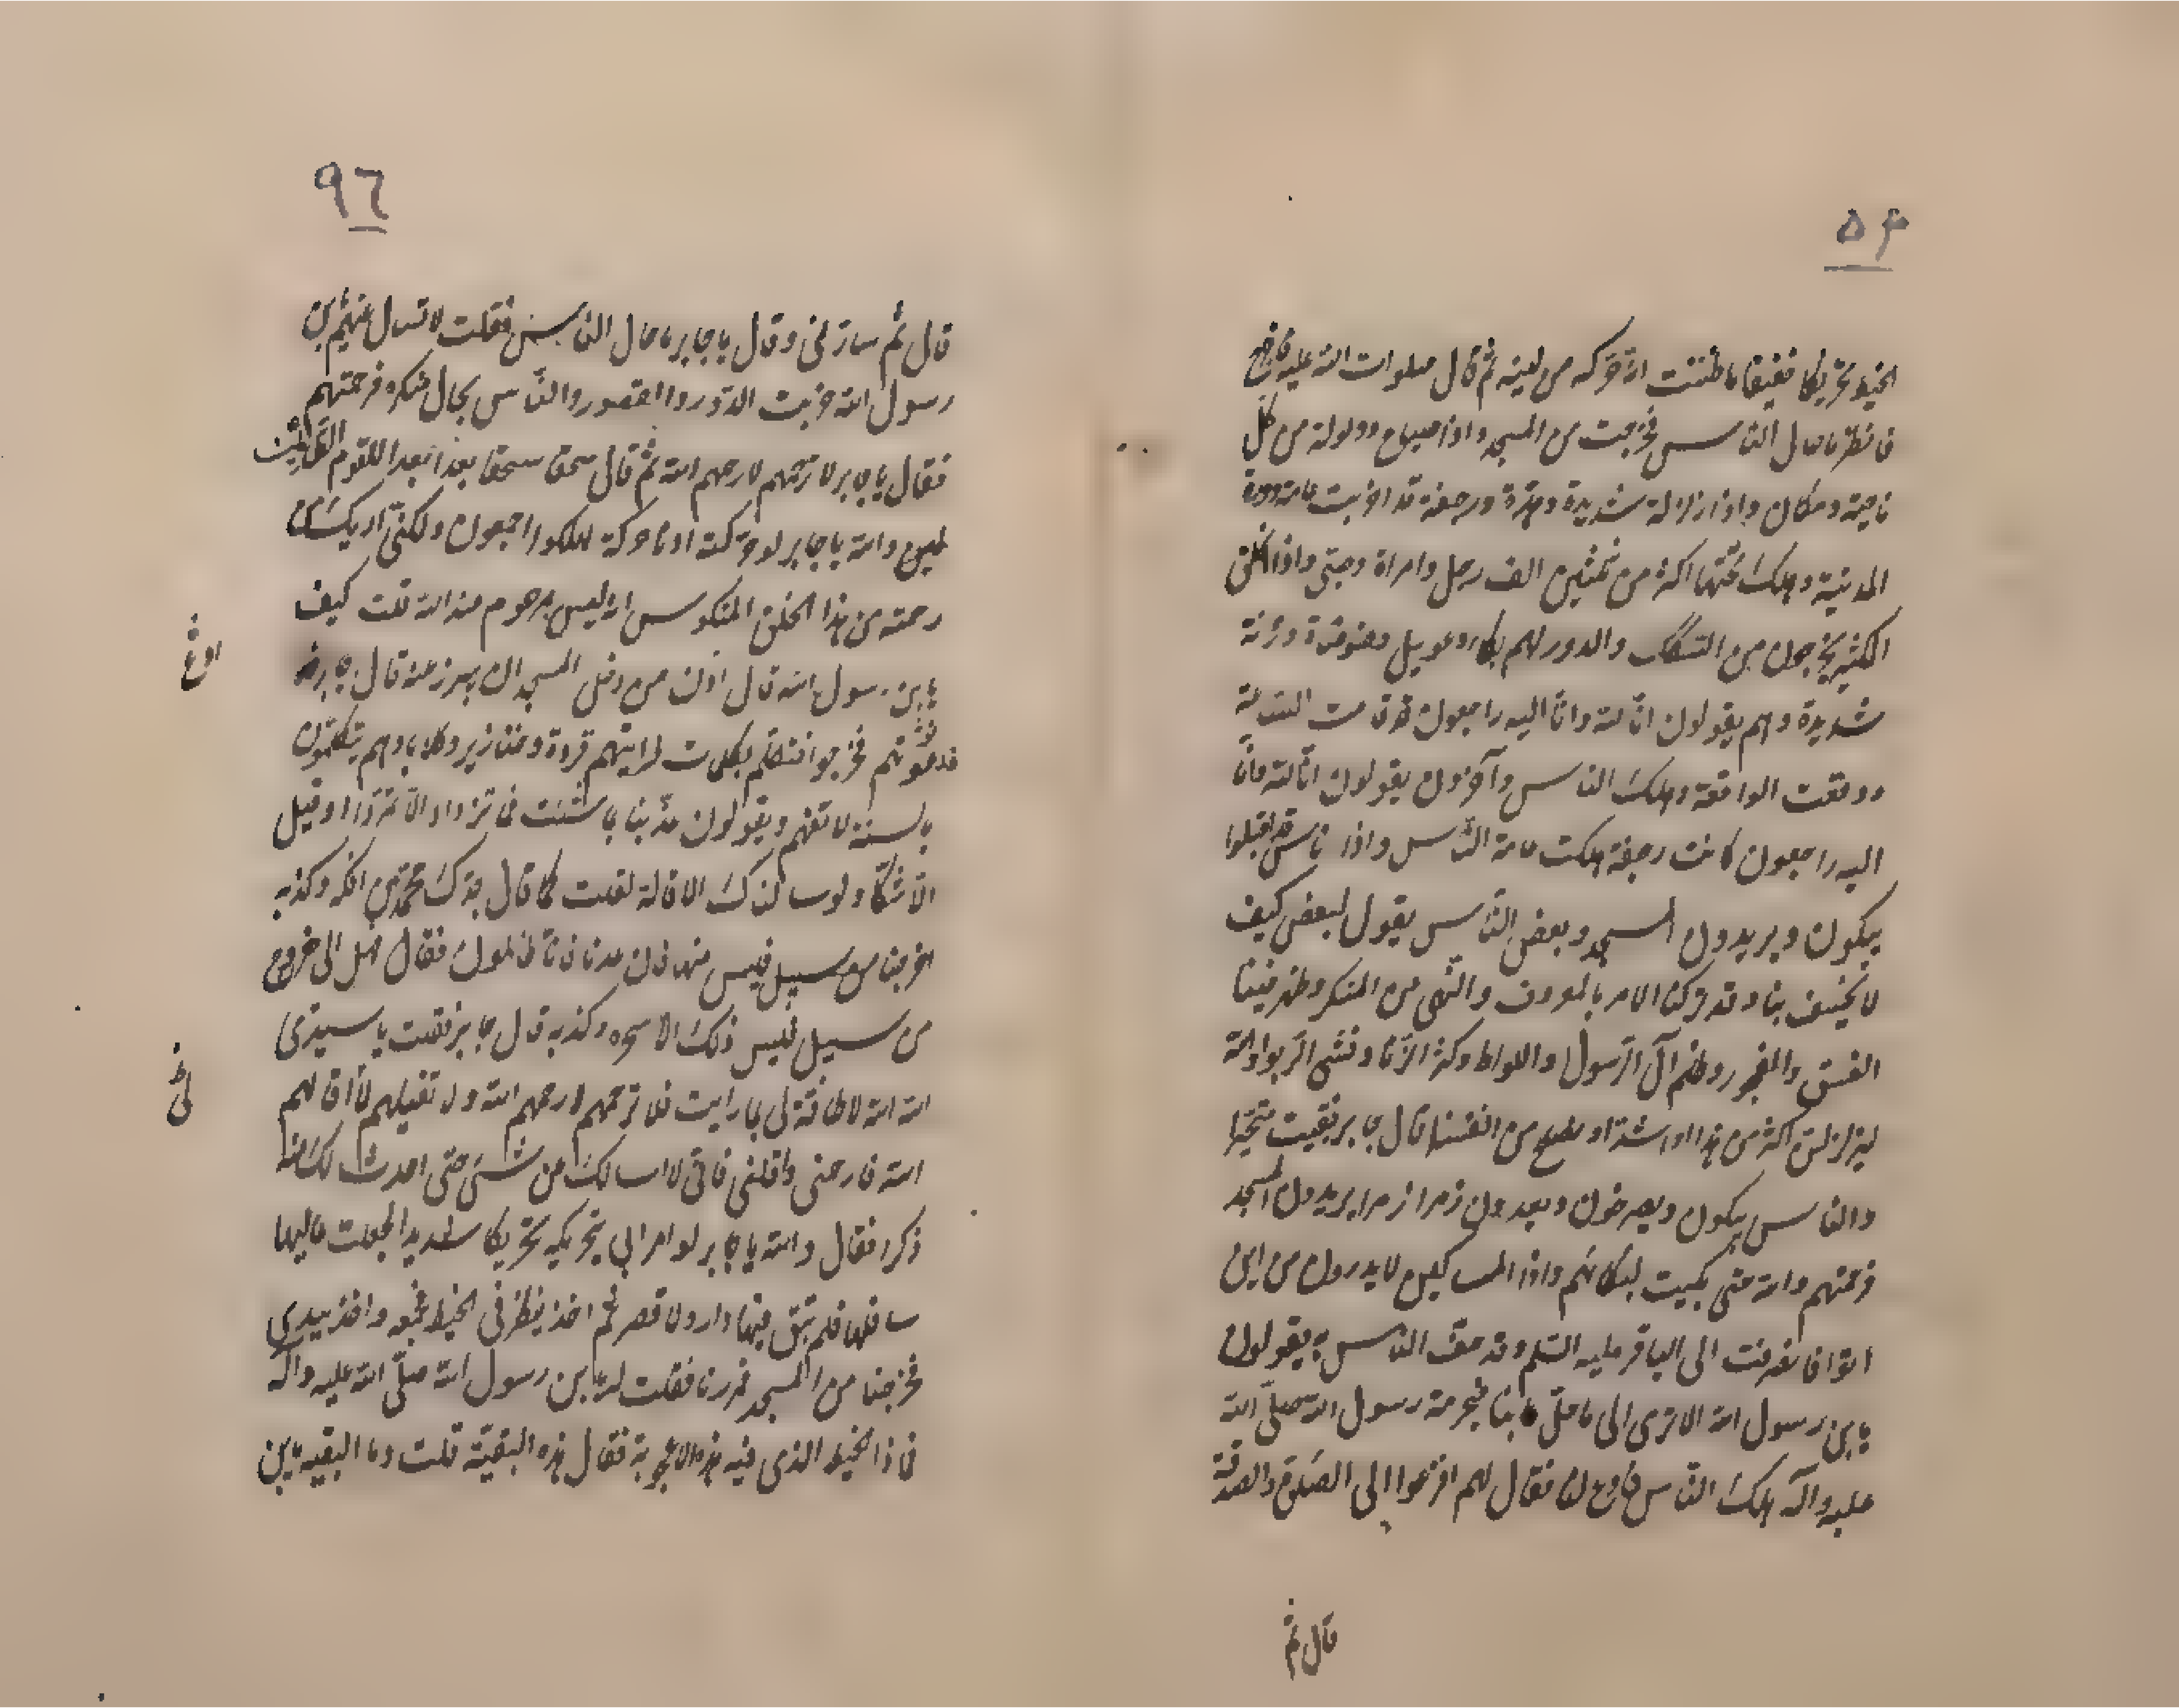 ۵۴
الخيط تحريكا خفيفا ما ظننت انه حركه من لينه ثم قال صلوات الله عليه فاخرج
فانظر ما حال الناس فخرجت من المسجد واذا صياح وولولة من كل
ناحية ومكان واذا زلزلة شديدة وهدة ورجفة قد اخربت عامة دور
المدينة وهلك تحتها اكثر من ثلثين الف رجل وامراة وصبى واذا الخلق
الكثير يخرجون من السكك والدور لهم بكاء وعويل وضوضاة ورنة
شديدة وهم يقولون انا لله وانا اليه راجعون قد قامت الساعة
ووقعت الواقعة وهلك الناس وآخرون يقولون انا لله وانا
اليه راجعون كانت رجفة هلكت عامة الناس واذا ناس قد اقبلوا
يبكون ويريدون المسجد وبعض الناس يقول لبعض كيف
لا يخسف بنا وقد تركنا الامر بالمعروف والنهى من المنكر وظهر فينا
الفسق والفجور وظلم آل الرسول واللواط وكثر الزنا وفشى الربوا والله
ليتزلزلن اكثر من هذا او اشد او يصلح من انفسنا قال جابر فبقيت متحيرا
والناس يبكون ويصرخون ويعدون زمرا زمرا يريدون المسجد
فرحمتهم والله حتى بكيت لبكائهم واذا المساكين لا يدرون من اين
اتوا فانصرفت الى الباقر عليه السلم وقد حف الناس به يقولون
يا بن رسول الله الا ترى الى ما حل بنا بحرمة رسول الله صلى الله
عليه وآله هلك الناس فادع لنا فقال لهم افزعوا الى الصلوة والصدقة
قال ثم
۹٦
قال ثم سار بى وقال يا جابر ما حال الناس فقلت لا تسال عنهم يا بن
رسول الله خربت الدور والقصور والناس بحال منكرة فرحمتهم
فقال يا جابر لا ترحمهم لا رحمهم الله ثم قال سحقا سحقا بعدا بعدا للقوم الظالمين
والله يا جابر لو حركته ادنى حركة لهلكوا اجمعون ولكنى اريك
رحمته من هذا الخلق المنكوس انه ليس بمرحوم عند الله قلت كيف
يا بن رسول الله قال اذن من دخل المسجد ان يبرز منه قال جابر
فدعوتهم فخرجوا فتكلم بكلمات لرايتهم قردة وخنازير وكلابا وهم يتكلمون
بالسنة لا تفهم ويقولون عذبنا بما شئت فما نزداد الا تمردا او قيل
الا شكا ولو سالناك الاقالة لقلت كما قال جدك محمد من افكه وكذبه
اخرجنا من سبيل فليس منها فان عدنا فانا ظالمون فقال هل الى خروج
من سبيل فليس ذلك الا سحره وكذبه قال جابر فقلت يا سيدى
الله الله لا طاقة لى بما رايت فلا ترحمهم لا رحمهم الله ولا تقيلهم لا اقالهم
الله فارحمنى واقلنى فانى لا اسالك عن شىء حتى احدث لك منه
ذكرا فقال والله يا جابر لو امر ابى بتحريكه تحريكا شديدا لجعلت عاليها
سافلها فلم تبق فيها دار ولا قصر ثم اخذ ينظر فى الخيط فجمعه واخذ بيدى
فخرجنا من المسجد فمررنا فقلت له يا بن رسول الله صلى الله عليه وآله
فاذا الخيط الذى فيه هذه الاعجوبة فقال هذه البقية قلت وما البقية يا بن